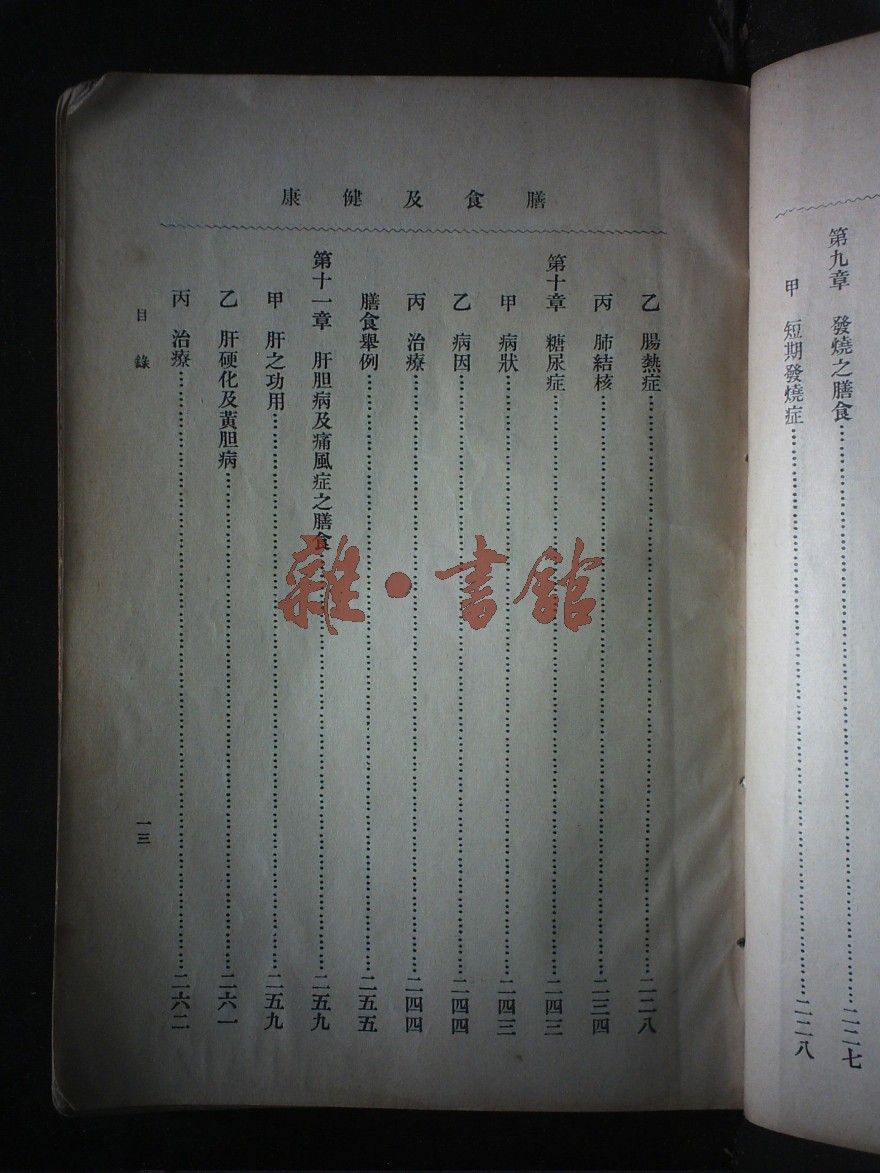 第九章　發燒之膳食……二二七
甲　短期發燒症……二二八
膳食及健康
乙　腸熱症……二二八
丙　肺結核……二三四
第十章　糖尿症……二四三
甲　病狀……二四三
乙　病因……二四四
丙　治療……二四四
膳食舉例……二五五
第十一章　肝胆病及痛風症之膳食……二五九
甲　肝之功用……二五九
乙　肝硬化及黃胆病……二六一
丙　治療……二六二
目錄
一三
雜·書館